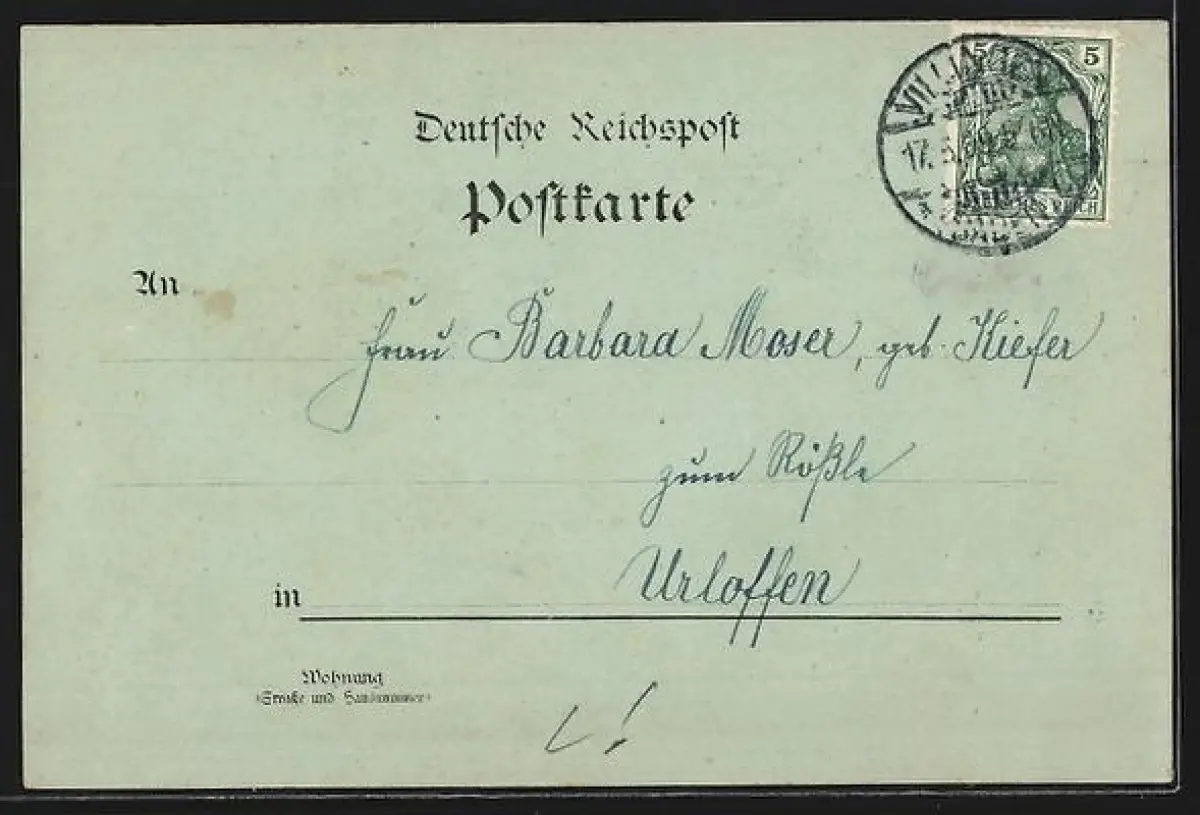 Deutsche Reichspost
Postkarte
5 5
VILLINGEN
17.
REICH
An
Frau Barbara Moser, geb. Kiefer
zum Rößle
in Urloffen
Wohnung
(Straße und Hausnummer)